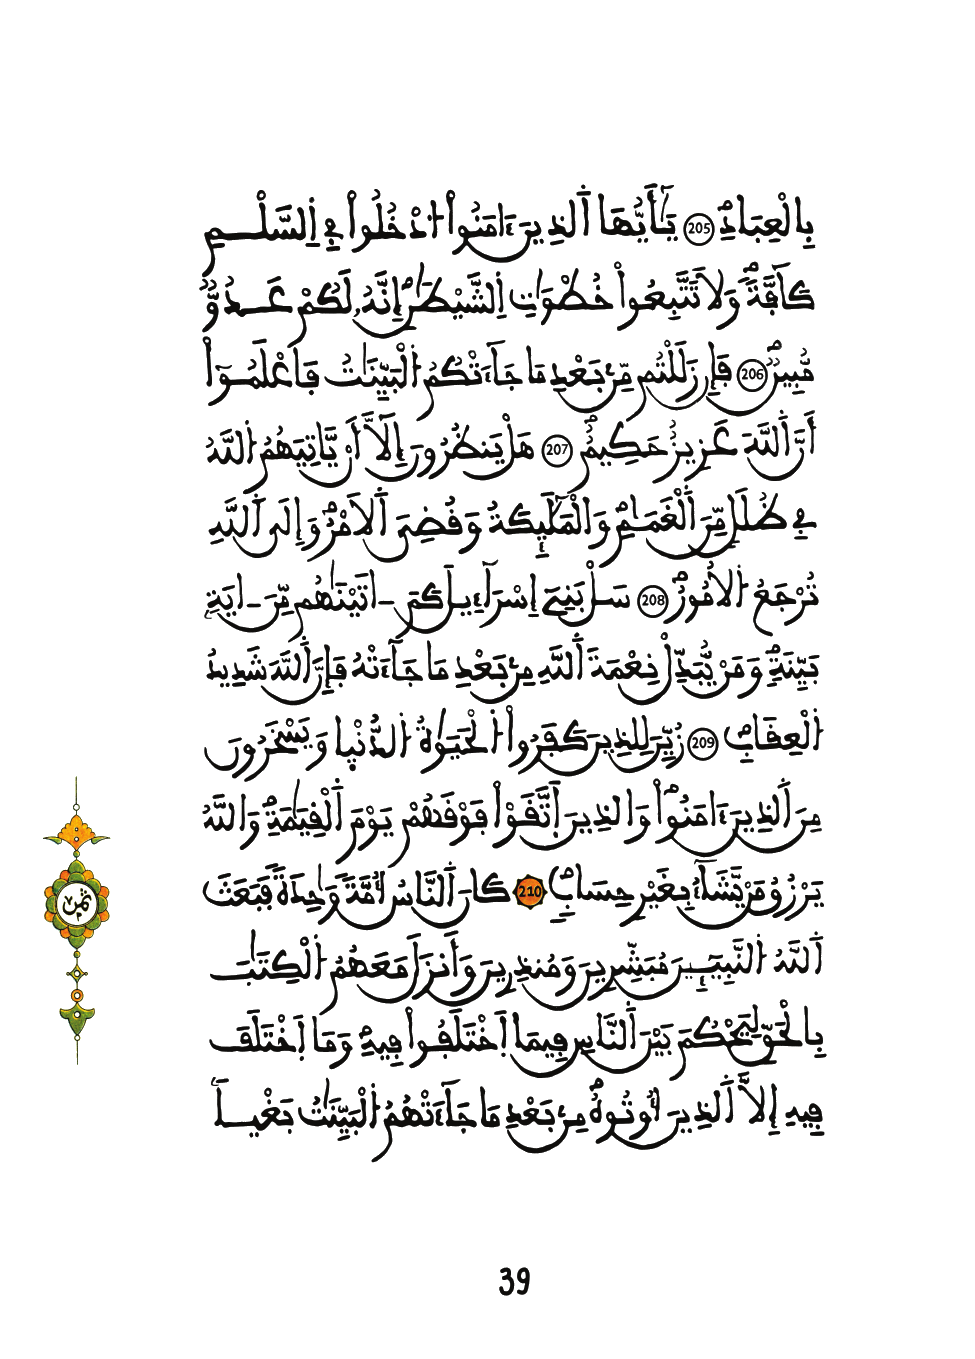 بِالْعِبَادِۖ 205 يَٰٓأَيُّهَا اَ۬لذِينَ ءَامَنُواْ اُ۟دْخُلُواْ فِے اِ۬لسَّلْمِ
كَآفَّةٗۖ وَلَا تَتَّبِعُواْ خُطْوَٰتِ اِ۬لشَّيْطَٰنِۖ إِنَّهُۥ لَكُمْ عَدُوّٞ
مُّبِينٞۖ 206 فَإِن زَلَلْتُم مِّنۢ بَعْدِ مَا جَآءَتْكُمُ اُ۬لْبَيِّنَٰتُ فَاعْلَمُوٓاْ
أَنَّ اَ۬للَّهَ عَزِيزٌ حَكِيمٌۖ 207 هَلْ يَنظُرُونَ إِلَّآ أَنْ يَّاتِيَهُمُ اُ۬للَّهُ
فِے ظُلَلٖ مِّنَ اَ۬لْغَمَٰمِ وَالْمَلَٰٓئِكَةُ وَقُضِيَ اَ۬لَامْرُۖ وَإِلَي اَ۬للَّهِ
تُرْجَعُ اُ۬لُامُورُۖ 208 سَلْ بَنِےٓ إِسْرَآءِيلَ كَمَ اٰتَيْنَٰهُم مِّنَ اٰيَةِۢ
بَيِّنَةٖۖ وَمَنْ يُّبَدِّلْ نِعْمَةَ اَ۬للَّهِ مِنۢ بَعْدِ مَا جَآءَتْهُ فَإِنَّ اَ۬للَّهَ شَدِيدُ
اُ۬لْعِقَابِۖ 209 زُيِّنَ لِلذِينَ كَفَرُواْ اُ۬لْحَيَوٰةُ اُ۬لدُّنْي۪ا وَيَسْخَرُونَ
مِنَ اَ۬لذِينَ ءَامَنُواْۖ وَالذِينَ اَ۪تَّقَوْاْ فَوْقَهُمْ يَوْمَ اَ۬لْقِيَٰمَةِۖ وَاللَّهُ
يَرْزُقُ مَنْ يَّشَآءُ بِغَيْرِ حِسَابٖۖ 210 كَانَ اَ۬لنَّاسُ أُمَّةٗ وَٰحِدَةٗۖ فَبَعَثَ
اَ۬للَّهُ اُ۬لنَّبِيٓـِٕۧنَ مُبَشِّرِينَ وَمُنذِرِينَ وَأَنزَلَ مَعَهُمُ اُ۬لْكِتَٰبَ
بِالْحَقِّ لِيَحْكُمَ بَيْنَ اَ۬لنَّاسِ فِيمَا اَ۪خْتَلَفُواْ فِيهِۖ وَمَا اَ۪خْتَلَفَ
فِيهِ إِلَّا اَ۬لذِينَ أُوتُوهُۖ مِنۢ بَعْدِ مَا جَآءَتْهُمُ اُ۬لْبَيِّنَٰتُ بَغْياَۢ
ثمن
39